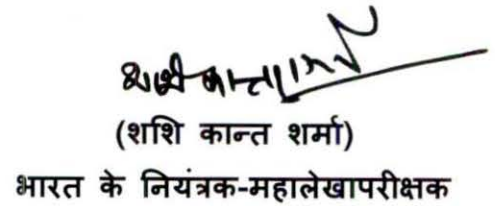 (शशि कान्त शर्मा)
भारत के नियंत्रक-महालेखापरीक्षक